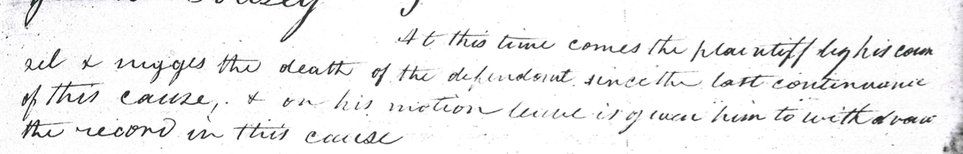 At this time comes the plaintiff by his coun
sel & sugges the death of the defendant since the last continuance
of this cause, & on his motion leave is given him to withdraw
the record in this cause